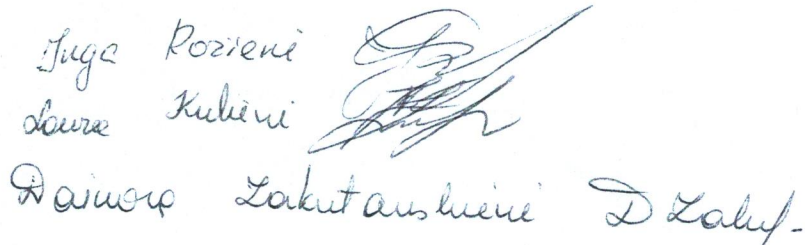 Inga Rozienė
Laura Kubienė
Dainora Zakutauskienė D Zakut-